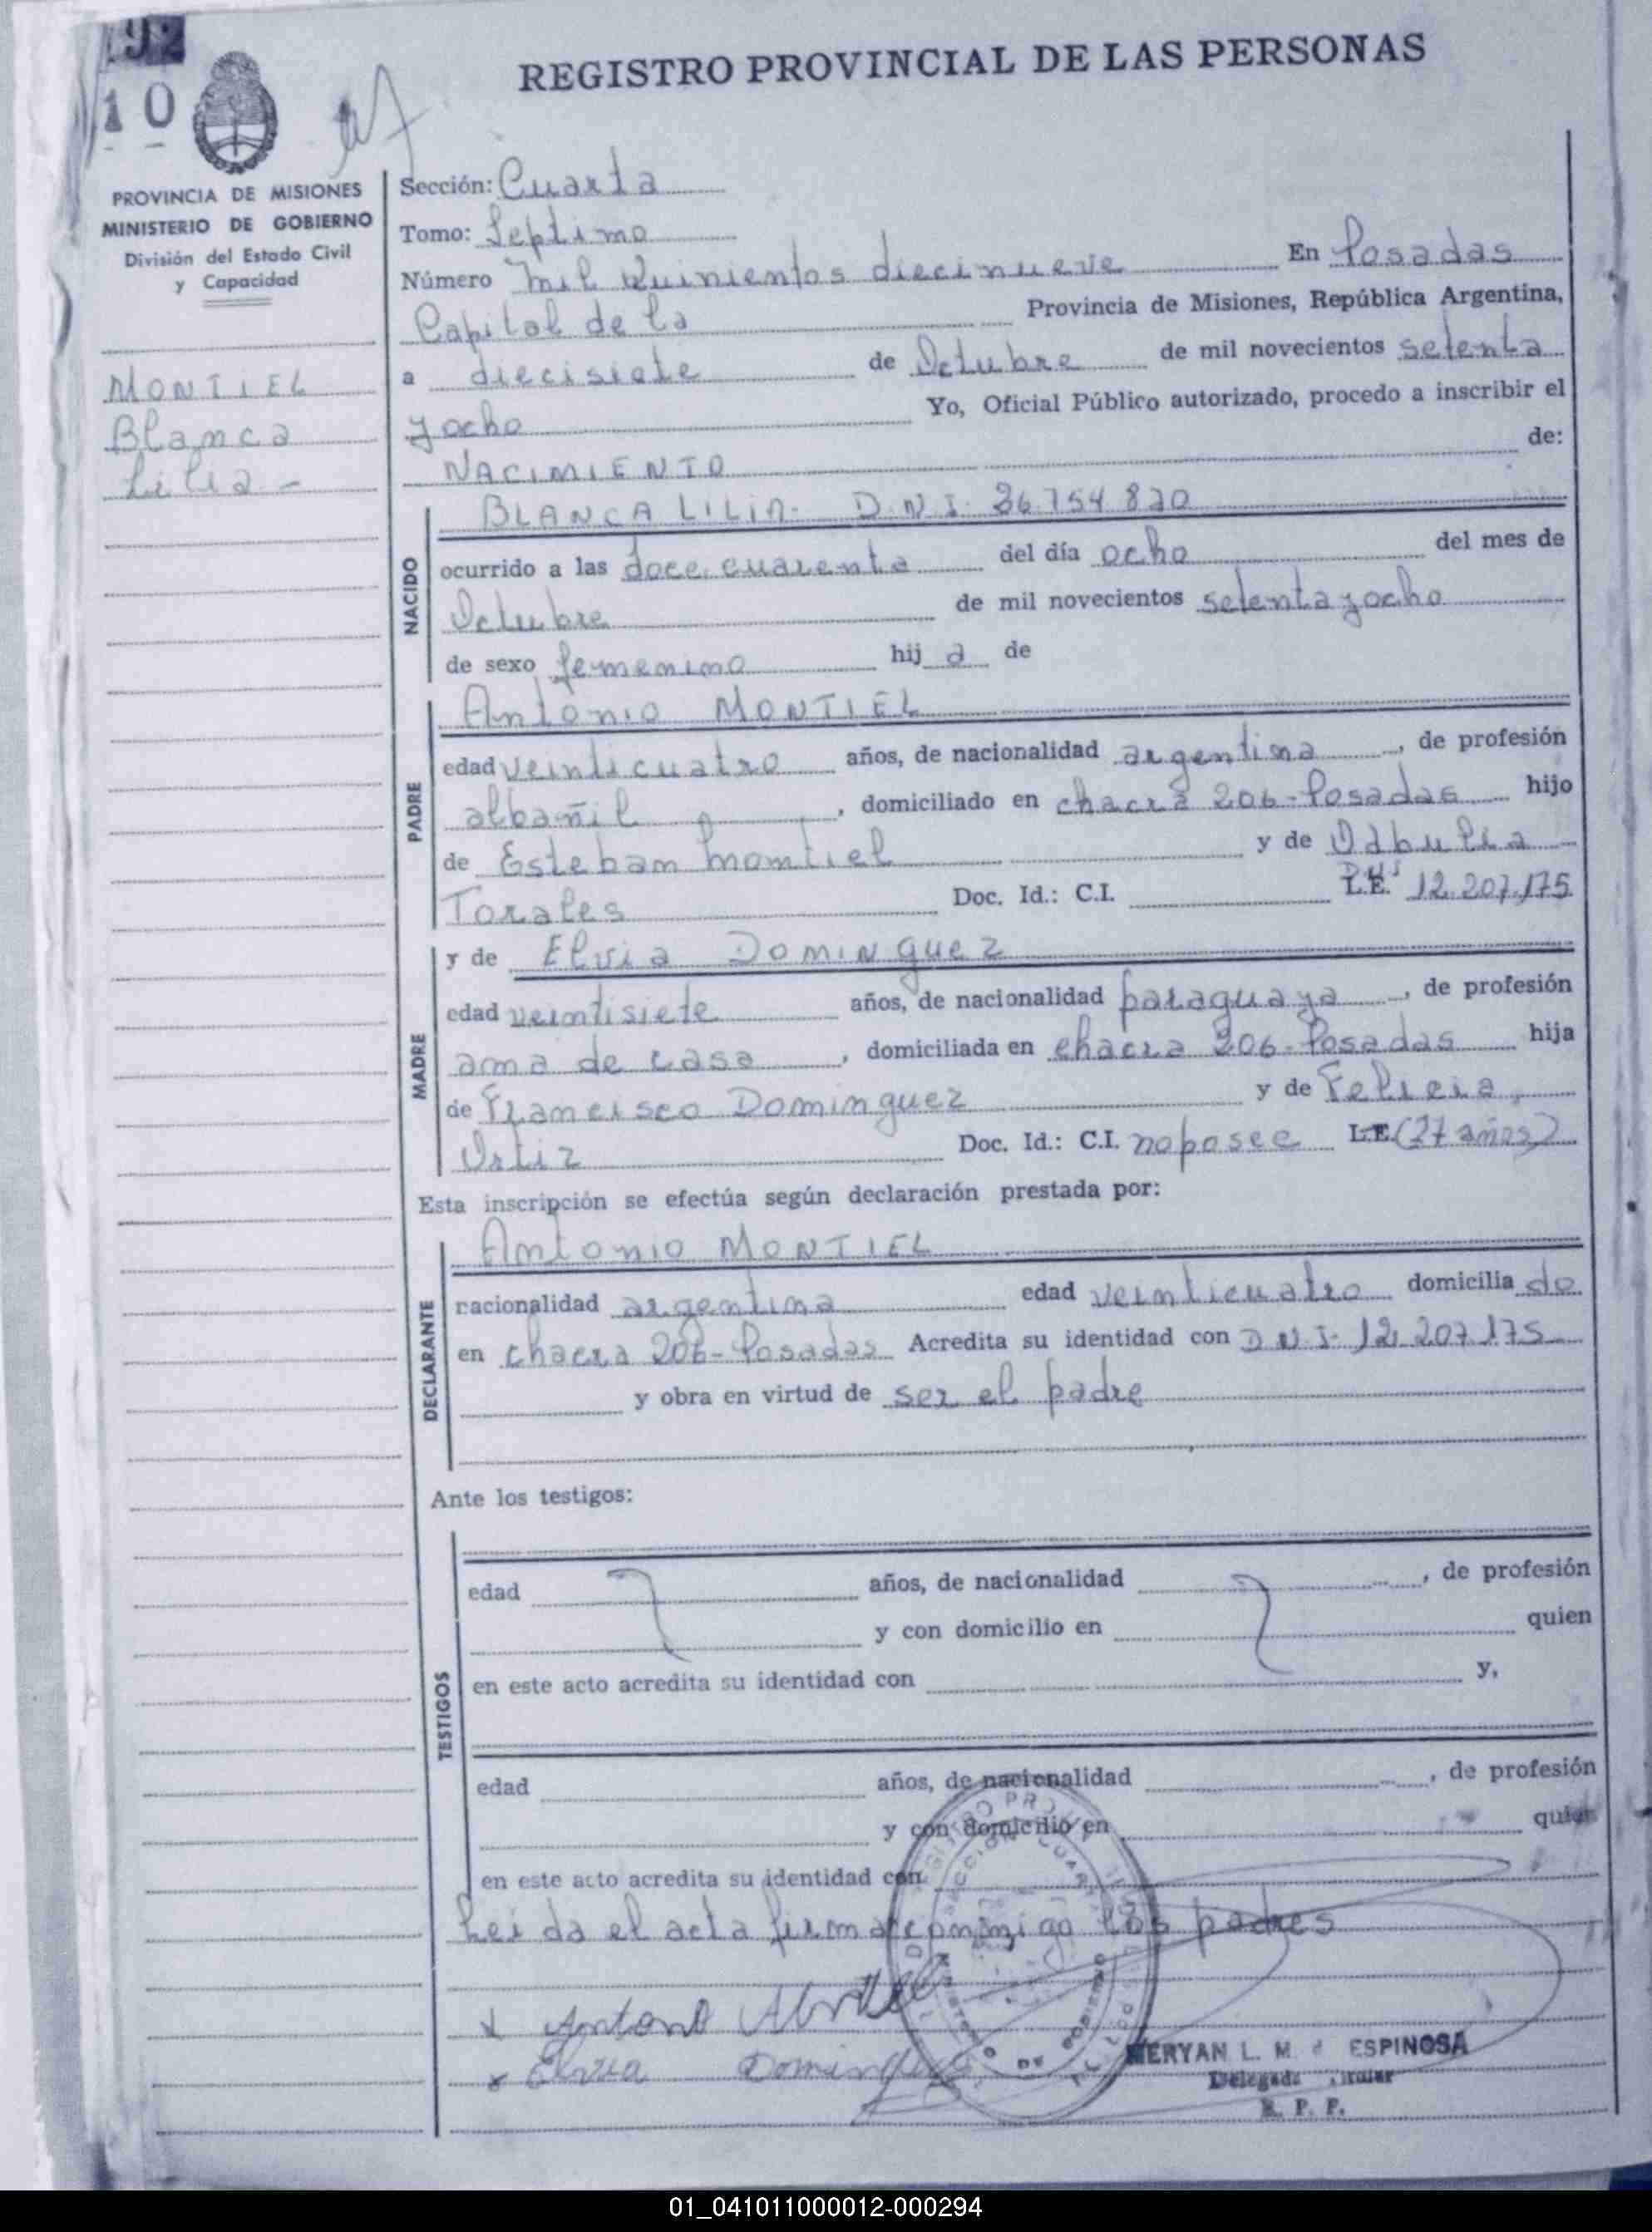 92
10
REGISTRO PROVINCIAL DE LAS PERSONAS
PROVINCIA DE MISIONES
MINISTERIO DE GOBIERNO
División del Estado Civil
y Capacidad
MONTIEL
Blanca
Lilia -
Sección: Cuarta
Tomo: Septimo
Número mil quinientos diecinueve En Posadas
Capital de la Provincia de Misiones, República Argentina,
a diecisiete de Octubre de mil novecientos setenta
y ocho Yo, Oficial Público autorizado, procedo a inscribir el
NACIMIENTO de:
NACIDO
BLANCA LILIA. D.N.I. 26.754.820
ocurrido a las doce, cuarenta del día ocho del mes de
Octubre de mil novecientos setenta y ocho
de sexo femenino hij a de
PADRE
Antonio MONTIEL
edad veinticuatro años, de nacionalidad argentina, de profesión
albañil, domiciliado en chacra 206 - Posadas hijo
de Esteban Montiel y de Odbulia
Torales Doc. Id.: C.I. L.E. 12.207.175
MADRE
y de Elvia Dominguez
edad veintisiete años, de nacionalidad paraguaya, de profesión
ama de casa, domiciliada en chacra 206 - Posadas hija
de Francisco Dominguez y de Felicia
Ortiz Doc. Id.: C.I. no posee L.E. (27 años)
Esta inscripción se efectúa según declaración prestada por:
DECLARANTE
Antonio MONTIEL
nacionalidad argentina edad veinticuatro domicilia do
en chacra 206 - Posadas Acredita su identidad con D.N.I - 12.207.175
y obra en virtud de ser el padre
Ante los testigos:
TESTIGOS
edad años, de nacionalidad , de profesión
y con domicilio en quien
en este acto acredita su identidad con y,
edad años, de nacionalidad , de profesión
y con domicilio en quien
en este acto acredita su identidad con
Leida el acta firma conmigo los padres
x Antonio
x Elvia Dominguez
MERYAN L. M. d ESPINOSA
Delegada Titular
R. P. P.
01_041011000012-000294